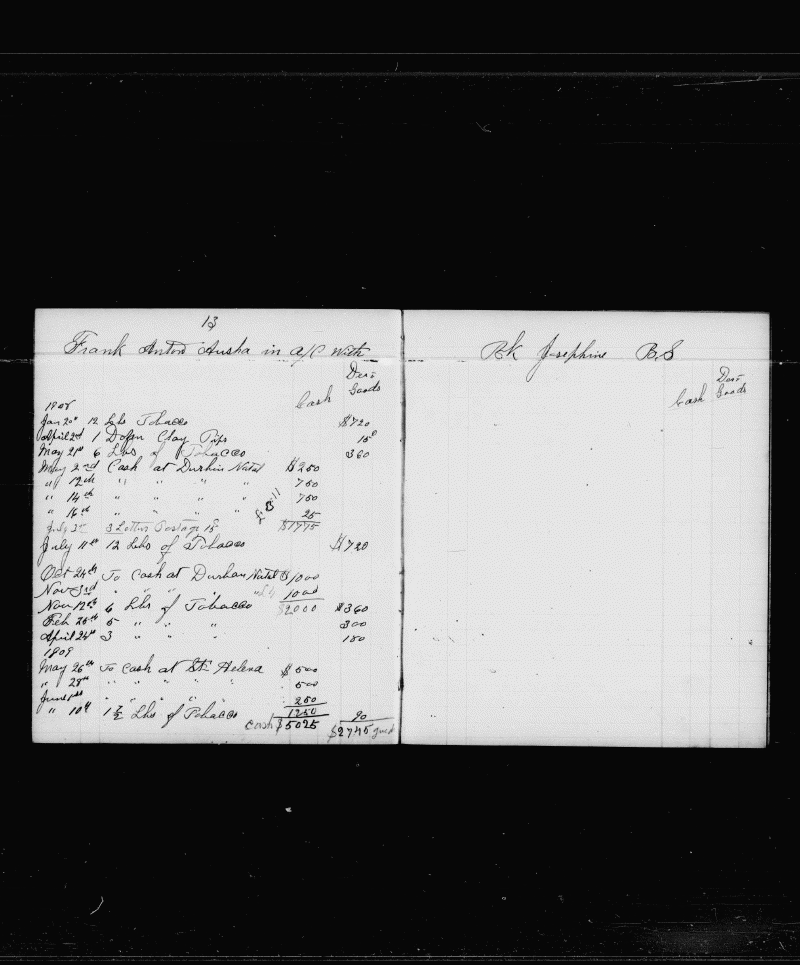 13
Frank Anton Ausha in A/C With
Bk Josephine B.S
Cash Goods
Cash Goods
1908
Jan 20th 12 Lbs Tobacco $720
April 2d 1 Dozen Clay Pips 15
May 21st 6 Lbs of Tobacco 360
May 2nd Cash at Durbin Natal $250
" 12th " " " " 750
" 14th " " " " 750
" 16th " " " " 25
July 3 Letter Postage 15c $1775
July 11th 12 Lbs of Tobacco $720
Oct 24th To Cash at Durban Natal $1000
Nov 3rd " " " 1000
Nov 12th 6 Lbs of Tobacco $2000 $360
Feb 25th 5 " " " 300
April 24th 3 " " " 180
1909
May 26th To Cash at St Helena $500
" 28th " " " " 500
June 1st " " " " 250
1250
" 10th 1 1/2 Lbs of Tobacco 90
Cash $5025 $2745